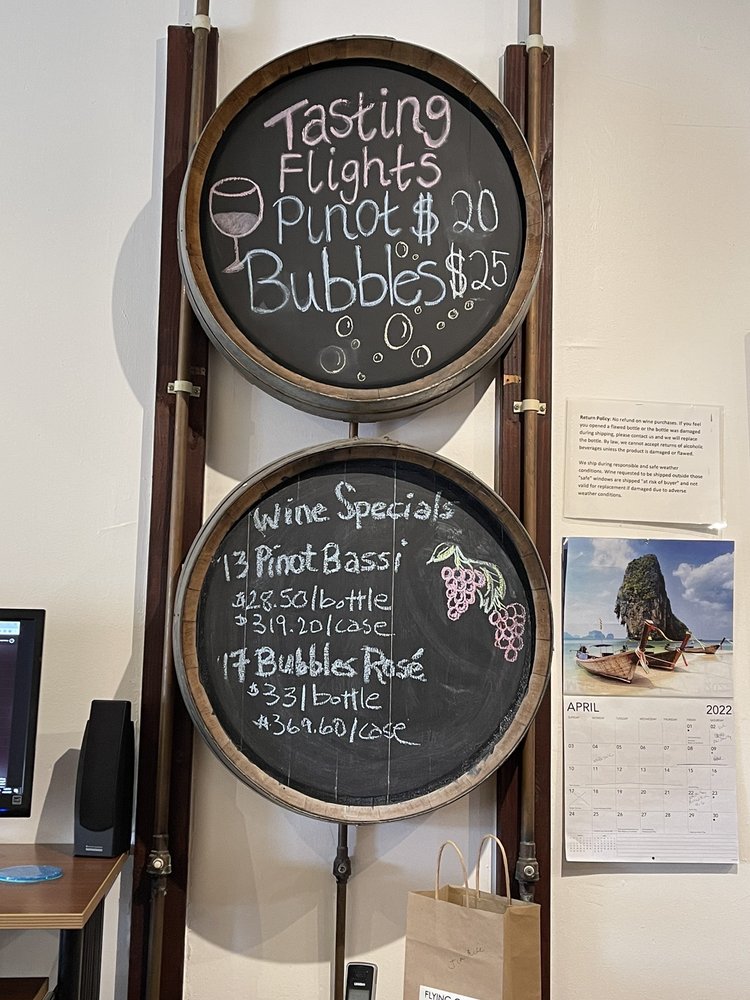 Tasting
Flights
Pinot $ 20
Bubbles $25
Wine Specials
'13 Pinot Bassi
$28.50/bottle
$319.20/case
'17 Bubbles Rosé
$33/bottle
$369.60/case
Return Policy: No refund on wine purchases. If you feel
you opened a flawed bottle or the bottle was damaged
during shipping, please contact us and we will replace
the bottle. By law, we cannot accept returns of alcoholic
beverages unless the product is damaged or flawed.
We ship during responsible and safe weather
conditions. Wine requested to be shipped outside those
"safe" windows are shipped "at risk of buyer" and not
valid for replacement if damaged due to adverse
weather conditions.
APRIL 2022
SUNDAY MONDAY TUESDAY WEDNESDAY THURSDAY FRIDAY SATURDAY
01 02
03 04 05 06 07 08 09
10 11 12 13 14 15 16
17 18 19 20 21 22 23
24 25 26 27 28 29 30
FLYING